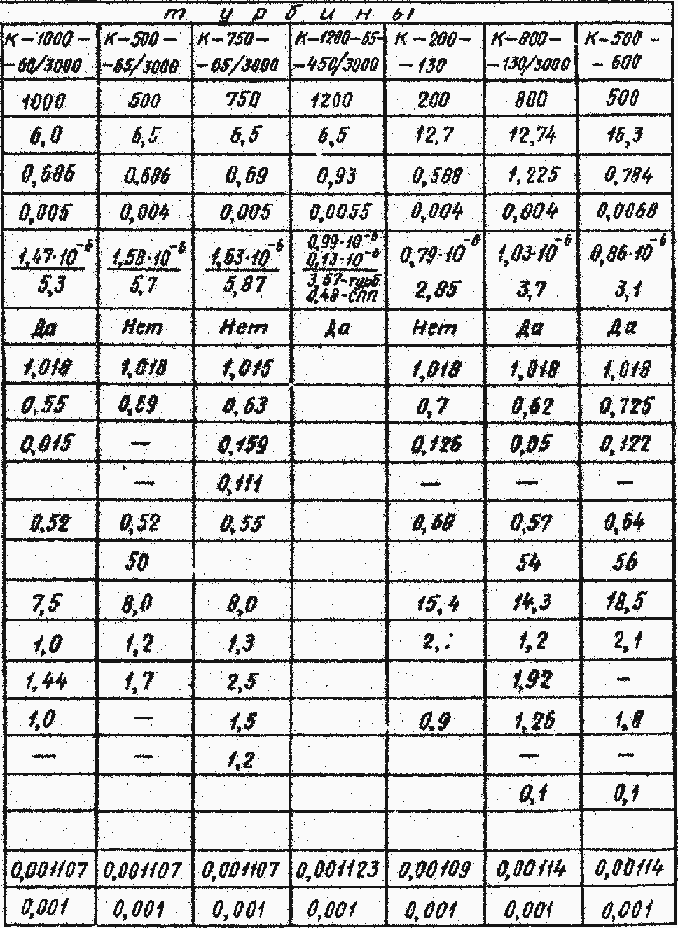 т у р б и н ы
К-1000- К-500- К-750- К-1200-65- К-200- К-800- К-500-
-60/3000 -65/3000 -65/3000 -450/3000 -130 -130/3000 -600
1000 500 750 1200 200 800 500
6,0 6,5 6,5 6,5 12,7 12,74 16,3
0,686 0,686 0,69 0,93 0,588 1,225 0,784
0,005 0,004 0,005 0,0055 0,004 0,004 0,0068
1,47·10⁻⁶ 1,58·10⁻⁶ 1,63·10⁻⁶ 0,99·10⁻⁶ 0,79·10⁻⁶ 1,03·10⁻⁶ 0,86·10⁻⁶
0,13·10⁻⁶
5,3 5,7 5,87 3,57-турб 2,85 3,7 3,1
0,48-СПП
Да Нет Нет Да Нет Да Да
1,018 1,018 1,015 1,018 1,018 1,018
0,55 0,69 0,63 0,7 0,62 0,725
0,015 — 0,159 0,126 0,05 0,122
— 0,111 — — —
0,52 0,52 0,55 0,68 0,57 0,64
50 54 56
7,5 8,0 8,0 15,4 14,3 18,5
1,0 1,2 1,3 1,2 2,1
1,44 1,7 2,5 1,92 —
1,0 — 1,5 0,9 1,26 1,8
— — 1,2 — —
0,1 0,1
0,001107 0,001107 0,001107 0,001123 0,00109 0,00114 0,00114
0,001 0,001 0,001 0,001 0,001 0,001 0,001